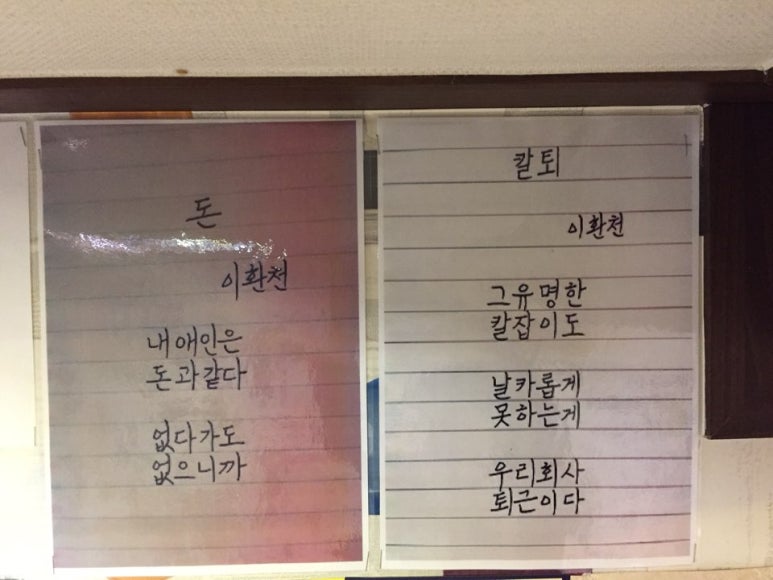 돈
이환천
내 애인은
돈과 같다
없다가도
없으니까
칼퇴
이환천
그유명한
칼잡이도
날카롭게
못하는게
우리회사
퇴근이다